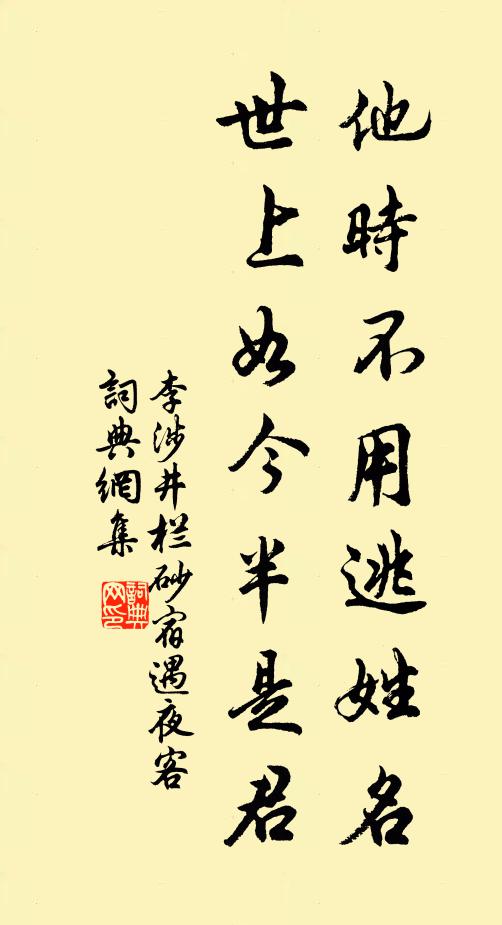 他時不用逃姓名
世上如今半是君
李涉井栏砂宿遇夜客
詞典網集
詞典
网印